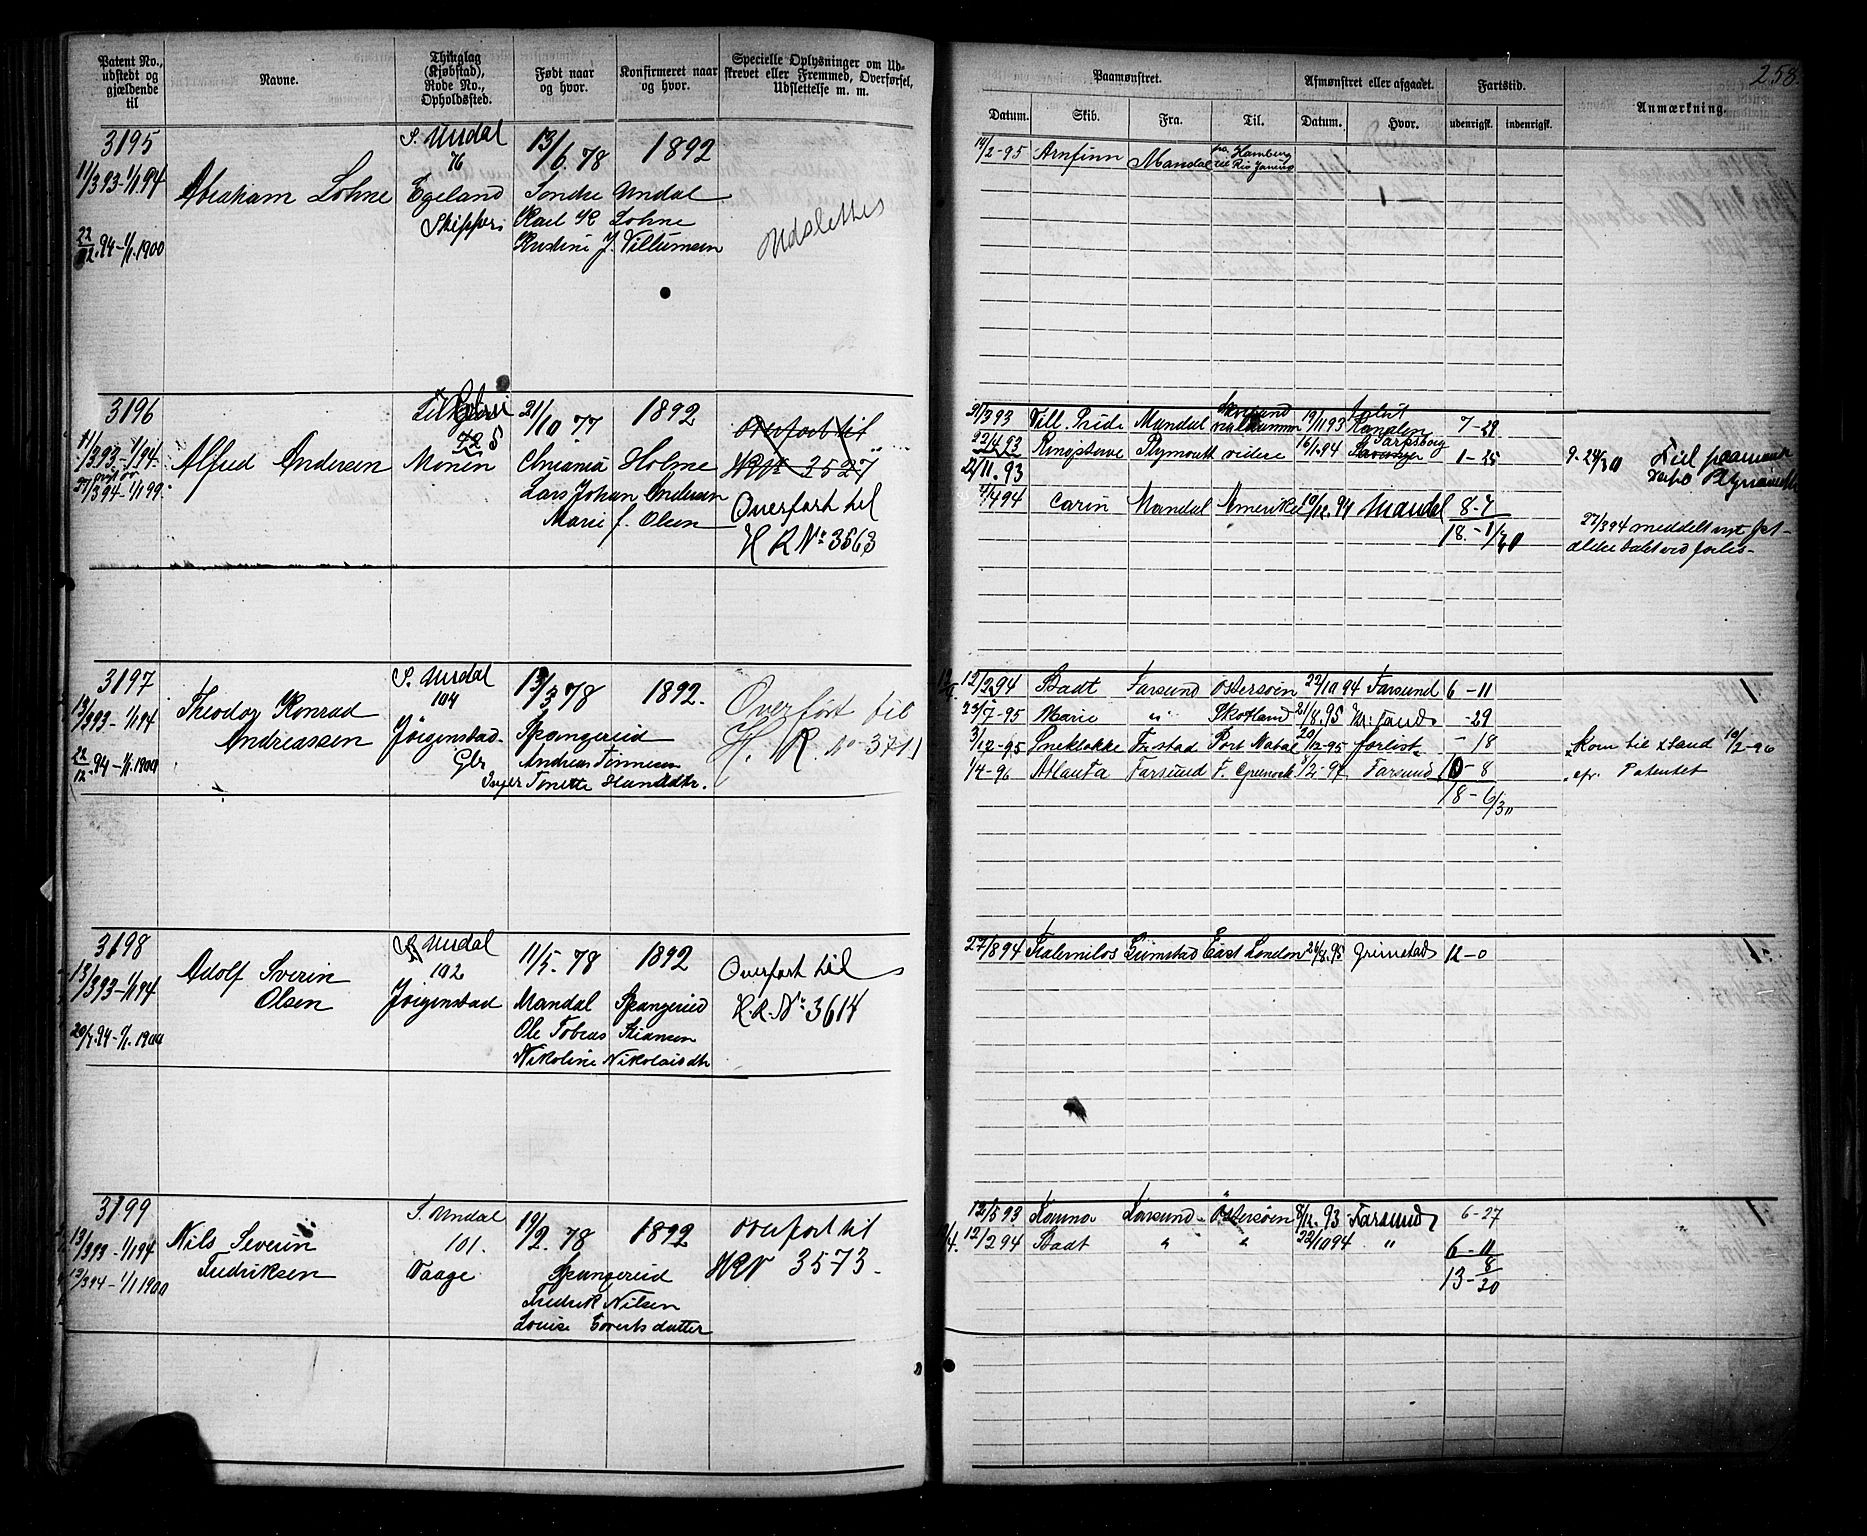 Patent No., udstedt og gjældende til
Navne.
Thinglag (Kjøbstad), Rode No., Opholdssted.
Født naar og hvor.
Konfirmeret naar og hvor.
Specielle Oplysninger om Udskrevet eller Fremmed, Overførsel, Udslettelse m. m.
Paamønstret.
Afmønstret eller afgaaet.
Fartstid.
Anmærkning.
258.
Datum.
Skib.
Fra.
Til.
Datum.
Hvor.
udenrigsk.
indenrigsk.
3195
11/3 93-1/1 94
22/12.94-1/1.1900
Abraham Lohne
S. Undal
76
Egeland
13/6.78
1892
Søndre Undal
Karl K Lohne
Kristine J. Villumsen
Udslettes
14/2-95 Arnfinn Mandal
Hamberg
til Rio Janeiro
3196
11/3 93-1/1 94
27/3 94-1/1 99.
Alfred Andersen
72
Monen
21/10 77
1892
Chriania Holme
Lars Johan Andersen
Marie J. Olsen
Overført til
HRN 3527
Overført til
H R No 3663
21/3 93 Vill. Pride Mandal
19/11 93
7-29
22/4 93 Ringhorne Plymouth videre 16/1.94
Sarpsborg
Stavanger
1-25
21/11.93
4/4 94 Carin Mandal Amerika 19/12.94 Mandal 8-7
18-1/30
9-24/30
27/3 94 meddelt nyt
forlis-
3197
13/3 93-1/1 94
22/12.94-1/1.1900
Theodor Konrad
Andreassen
S. Undal
104
Jørgenstad
Gbr
13/3 78
1892.
Spangereid
Andreas Tønnesen
Inger Tonette
Overført til
H. R. No 3711
12/2 94 Badt Farsund Østersøen 22/10 94 Farsund 6-11
23/7-95 Marie " Skotland 21/8.95
-29
3/12-95 Sneklokke
Port Natal 20/12-95 forlist -18
Kom til 10/2-96
1/4-96 Atlanta Farsund
Greenock 5/2-97 Farsund 10-8
Patentet
18-6/30
3198
13/3 93-1/1 94
Adolf Sverin
Olsen
S. Undal
102
Jørgenstad
11/5.78
1892
Mandal Spangereid
Ole Tobias
Nikoline Nikolaisdtr
Overført til
H.R. No 3614
27/8 94
Grimstad East London 24/8.95 Grimstad 12-0
3199
13/3 93-1/1 94
12/3 94-1/1 1900
Nils Severin
Fredriksen
S. Undal
101.
Vaage
19/2.78
1892
Spangereid
Fredrik Nilsen
Louise Evertsdatter
Overført til
HRN 3573.
12/5 93
Farsund Østersøen 8/12.93 Farsund 6-27
12/2 94 Badt " " 22/10 94 " 6-11
13-8/30